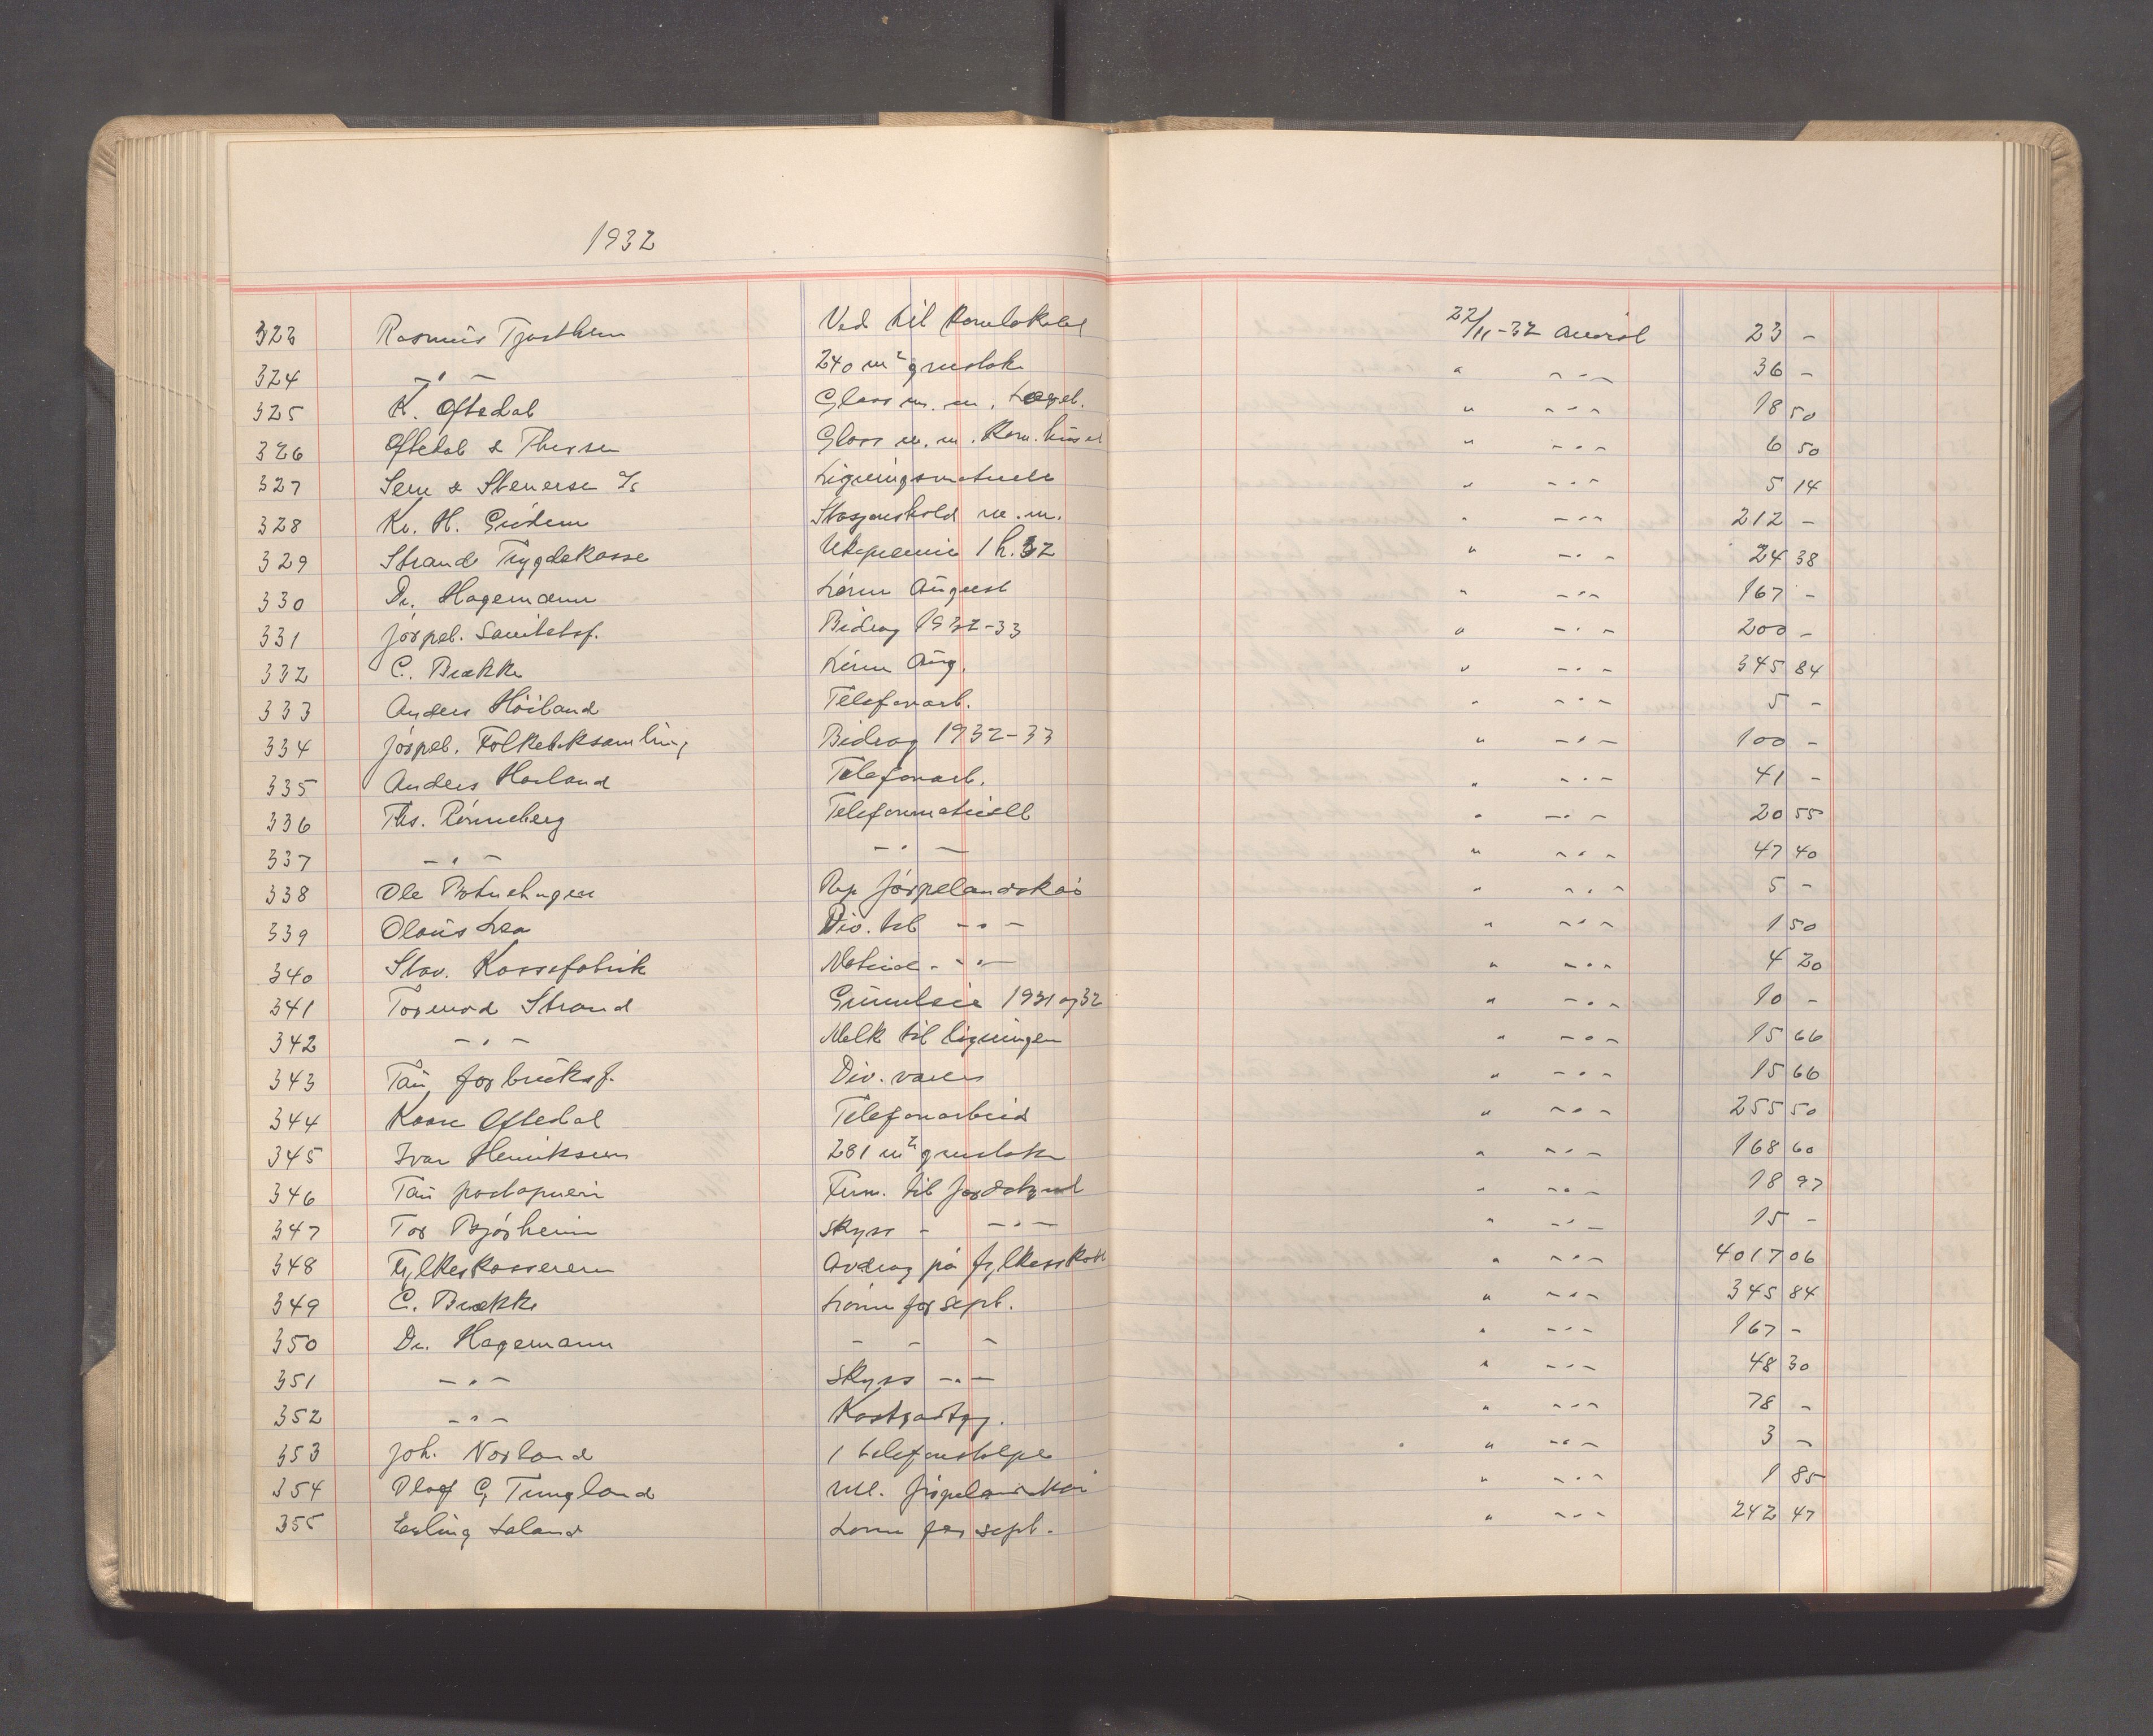 1932
323 Rasmus Tjostheim Ved til Komlokalet 22/11-32 Anvist 23 -
324 -"- 240 m² gruslok " -"- 36 -
325 K. Oftedal Glass m. m. " -"- 18 50
326 Oftedal & Thersen Glass m. m. Kom. huset " -"- 6 50
327 Sem & Stenersen A/S Ligningsmateriell " -"- 5 14
328 Kr. H. m. m. " -"- 212 -
329 Strand Trygdekasse 1 h. 32 " -"- 24 38
330 Dr. Hagemann Lønn August " -"- 167 -
331 Jørpel. Sanitetsf. Bidrag 1932-33 " -"- 200 -
332 C. Brække Lønn Aug. " -"- 345 84
333 Anders Høiland Telefonarb. " -"- 5 -
334 Jørpel. Folkeboksamling Bidrag 1932-33 " -"- 100 -
335 Anders Høiland Telefonarb. " -"- 41 -
336 Ths. Rønneberg Telefonmateriell " -"- 20 55
337 -"- -"- " -"- 47 40
338 Ole Rep Jørpelandskai " -"- 5 -
339 Olaus Lea Div. til -"- " -"- 1 50
340 Stav. Kassefabrik Materiel -"- " -"- 4 20
341 Tormod Strand Grunnleie 1931 og 32 " -"- 10 -
342 -"- Melk til ligningen " -"- 15 66
343 Tau forbruksf. Div. varer " -"- 15 66
344 Kaare Oftedal Telefonarbeid " -"- 255 50
345 Ivar Henriksen 281 m² gruslok " -"- 168 60
346 Tau postopneri Frim. til jordstyret " -"- 18 97
347 Tor Bjørheim Skyss - -"- " -"- 15 -
348 Fylkeskasseren Avdrag på fylkesskatt " -"- 4017 06
349 C. Brække Lønn for sept. " -"- 345 84
350 Dr. Hagemann - - - " -"- 167 -
351 -"- Skyss -"- " -"- 48 30
352 -"- Kostgodtgj. " -"- 78 -
353 Joh. Norland 1 telefonstolpe " -"- 3 -
354 Olaf G. Tungland Jørpelandskai " -"- 1 85
355 Erling Laland Lønn for sept. " -"- 242 47